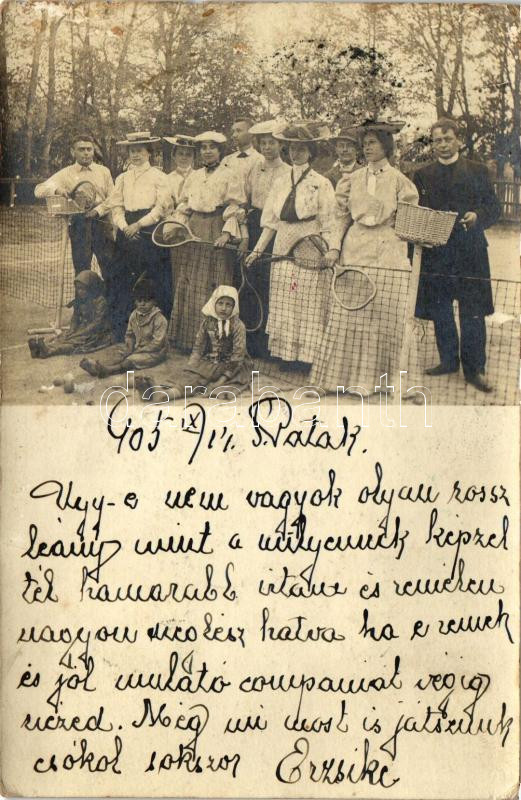 905 IX/14. S. Patak.
Ugy-e nem vagyok olyan rossz
leány mint a milyennek képzel
tél hamarabb irtam és remélem
nagyon meglesz hatva ha e remek
és jól mulató companiat végig
nézed. Még mi most is játszunk
csókol sokszor Erzsike
darabanth